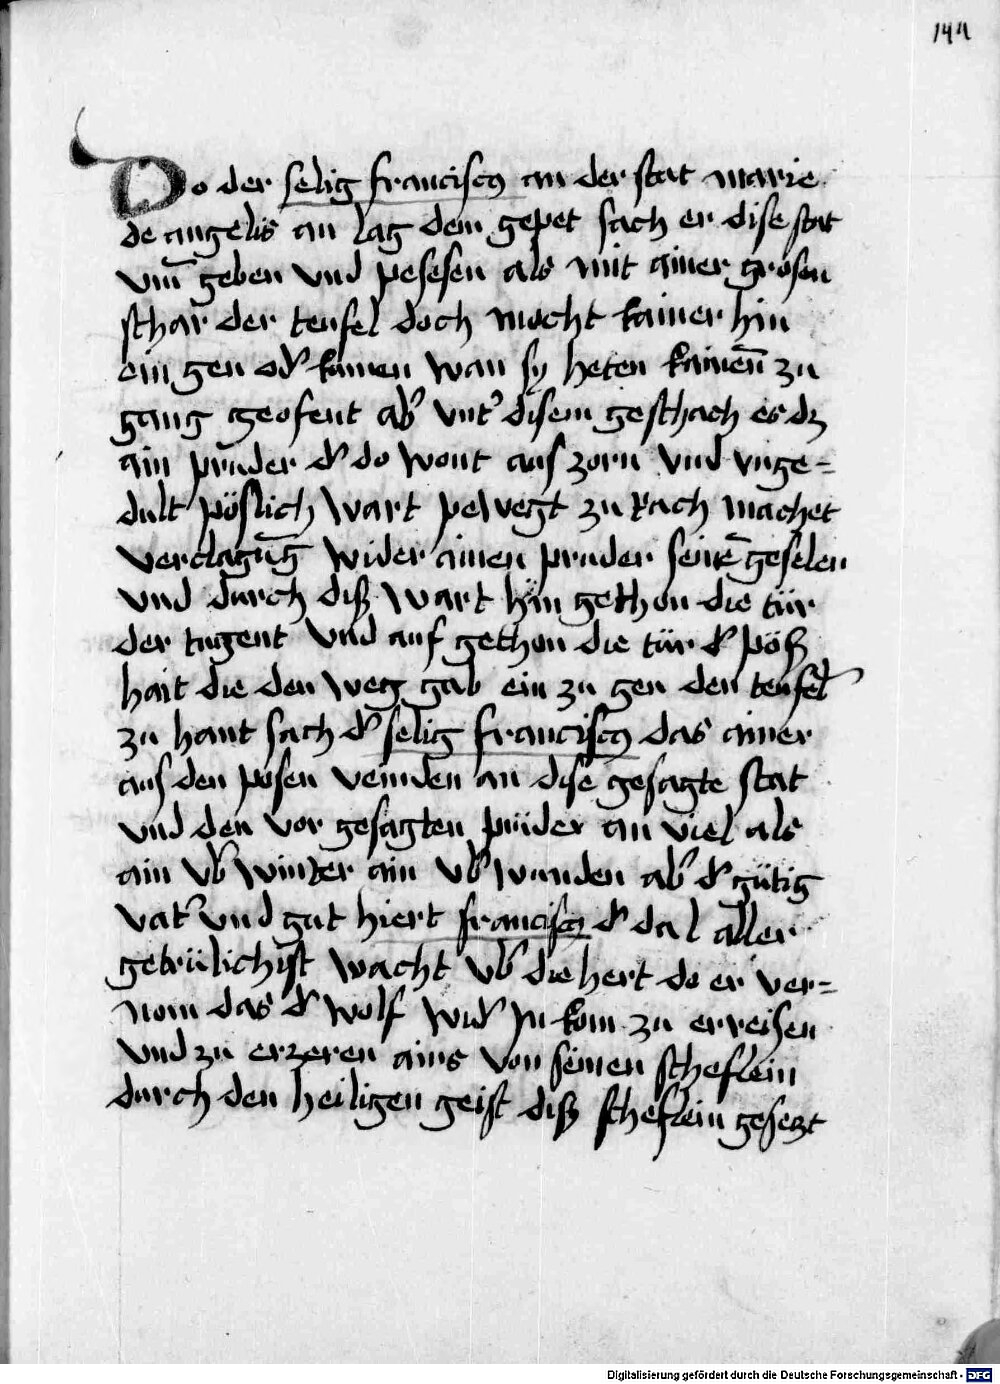 144
Do der selig francisc9 an der stat marie
de angelis an lag dem gepet sach er dise stat
vm̄ geben vnd pesesen als mit ainer grosen
schar der teufel doch mocht kainer hin
ein gen od' kumen wan sy heten kainen̄ zu
gang geofent ab' vnt' disem geschach es dz
ain pruder d' do wont aus zorn vnd vnge=
dult pöslich wart pewegt zu Rach machet
verclagūg wider ainen pruder seinē geselen
vnd durch diß wart hin gethon die tür
der tugent vnd auf gethon die tür d' pöß
hait die den weg gab ein zu gen den teufel'
zu hant sach d' selig francisc9 das ainer
aus den posen veinden an dise gesagte stat
vnd den vor gesagten prüder an viel als
ain vb' winter ain vb' wunden ab' d' gütig
vat' vnd gut hiert francisc9 d' da l aller
getrülichist wacht vb' die hert do er ver=
nom das d' wolf wid' in kom zu erreisen
vnd zu erzeren ains von seinen scheflein
durch den heiligen geist diß scheflein gesetzt
Digitalisierung gefördert durch die Deutsche Forschungsgemeinschaft - DFG